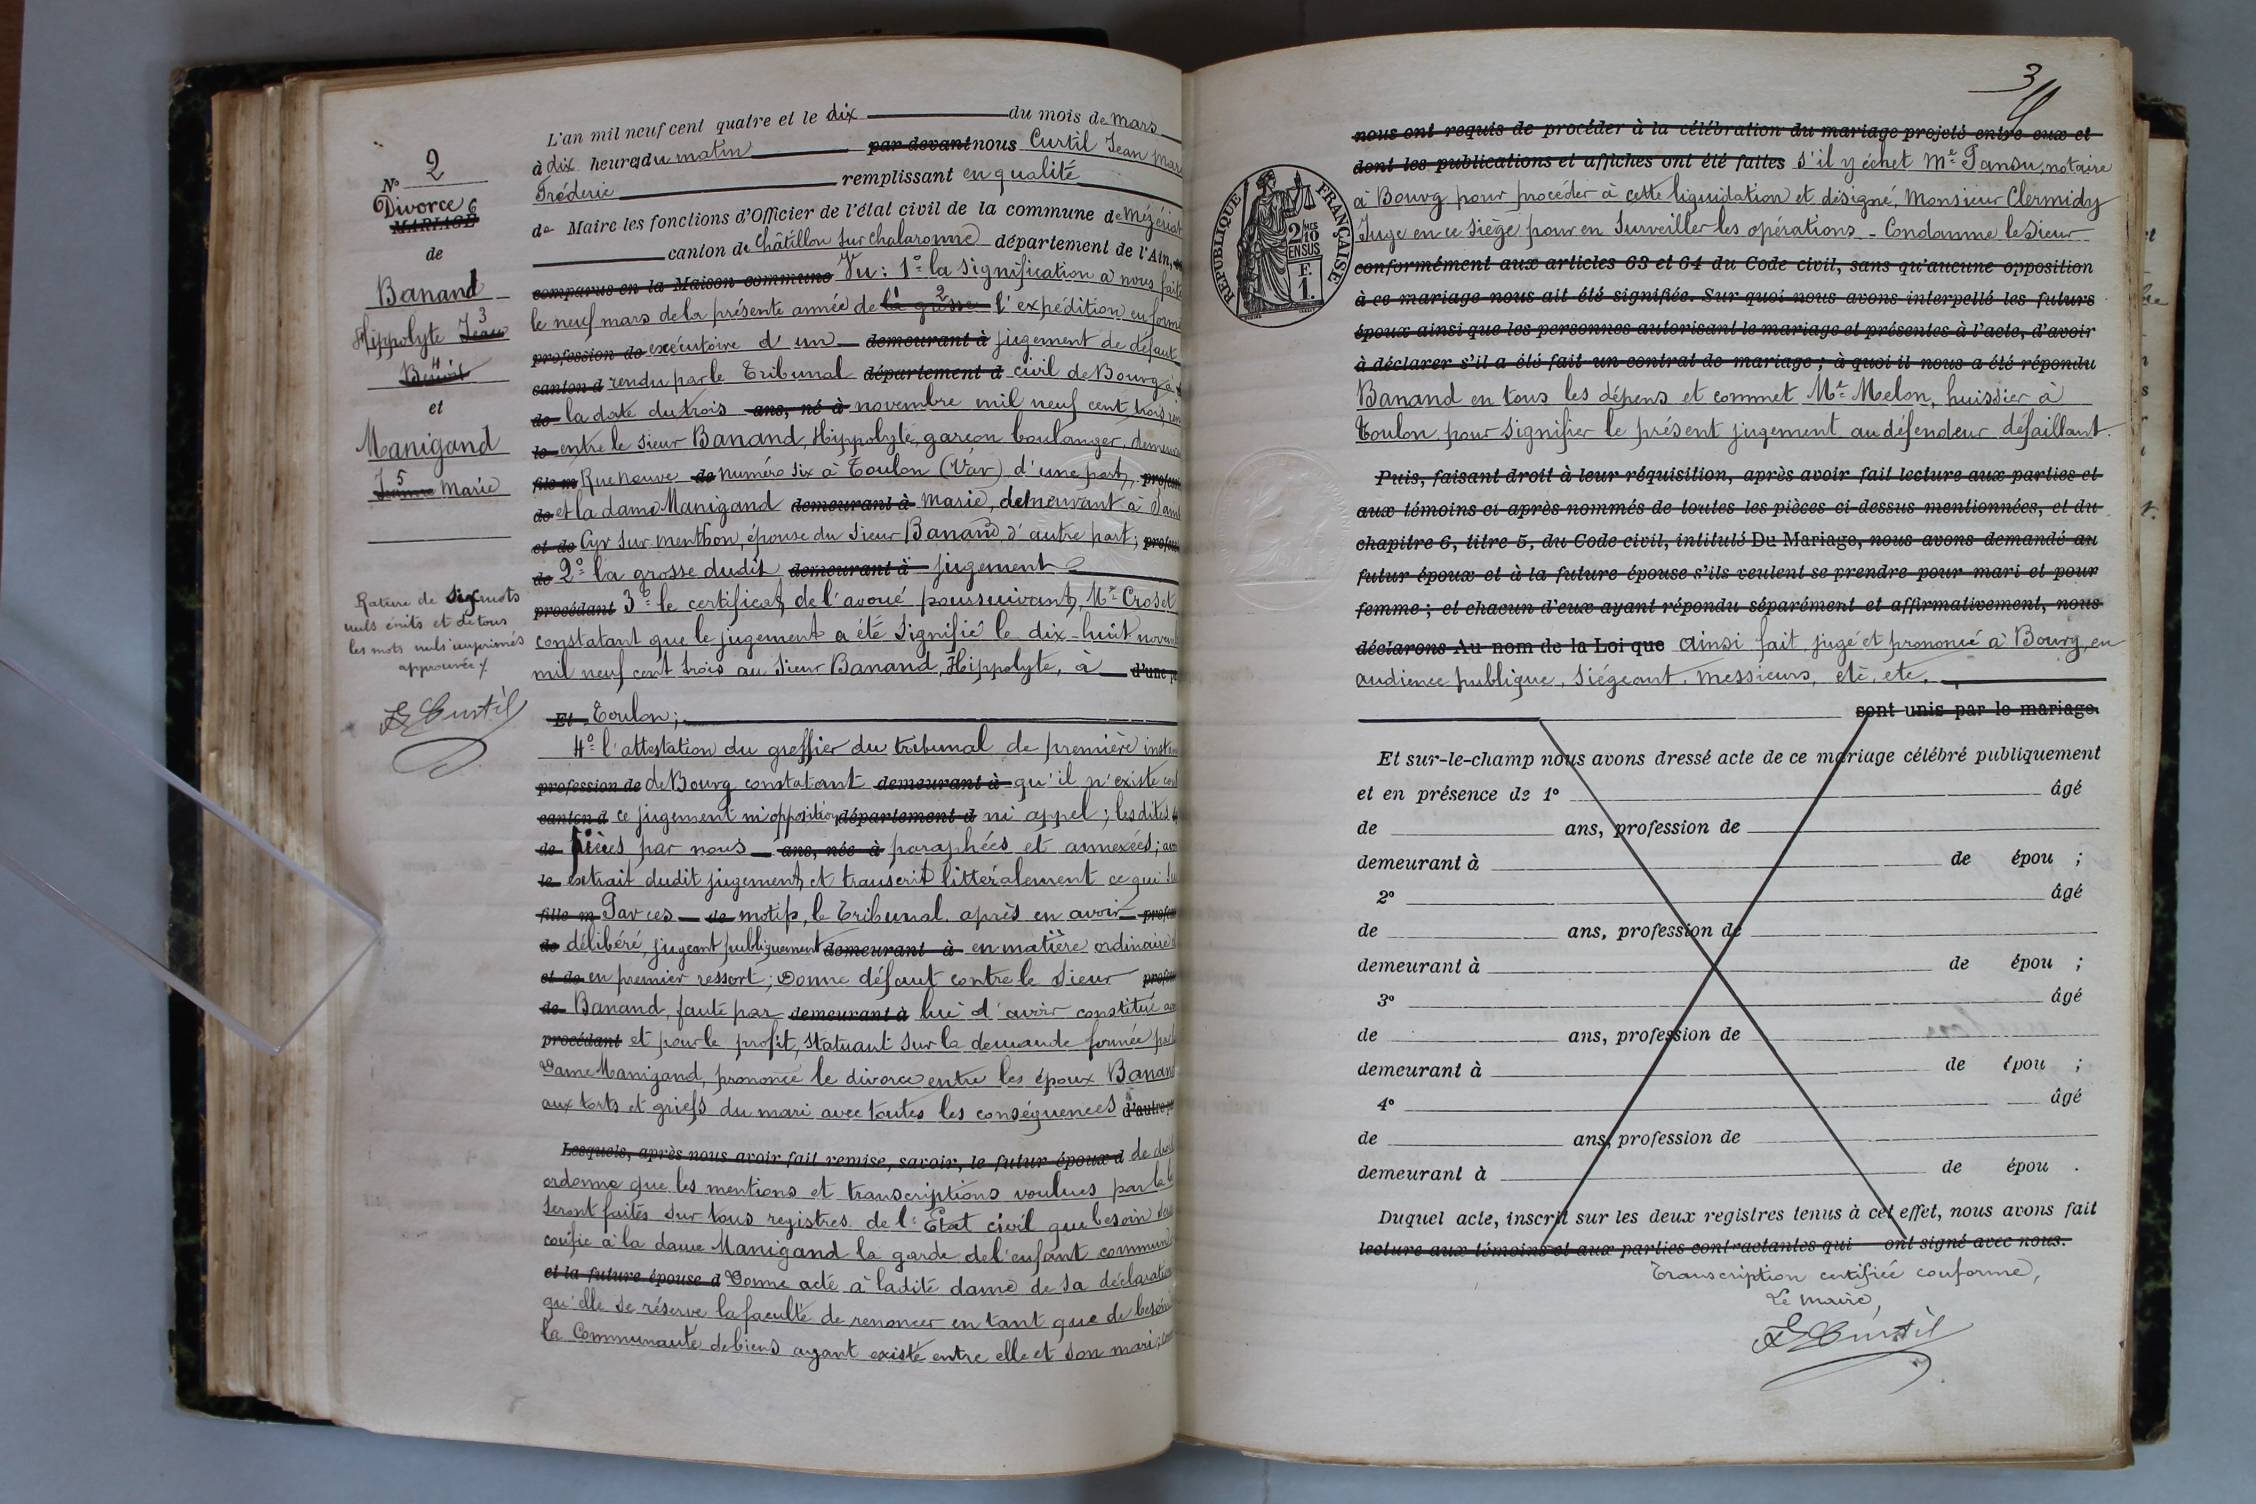 N° 2
Divorce 6
MARIAGE
de
Banand
Hippolyte Jean 3
Benoit 4
et
Manigand
Jeanne 5 Marie
Rature de six mots
nuls écrits et de tous
les mots nuls imprimés
approuvée
Curtil
L'an mil neuf cent quatre et le dix du mois de mars
à dix heures du matin par devant nous Curtil Jean Mar
Fréderic remplissant en qualité
de Maire les fonctions d'Officier de l'état civil de la commune de Mézériat
canton de Châtillon sur Chalaronne département de l'Ain,
comparus en la Maison commune Vu : 1° la signification à nous faite
le neuf mars de la présente année de la grosse 2 l'expédition en forme
profession de exécutoire d'un demeurant à jugement de défaut
canton d rendu par le Tribunal département d civil de Bourg à
de la date du trois ans, né à novembre mil neuf cent trois
le entre le sieur Banand, Hippolyte, garçon boulanger, demeur
fils m Rue neuve de numéro six à Toulon (Var) d'une part,
de et la dame Manigand demeurant à Marie, demeurant à Saint
et de Cyr sur Menthon, épouse du sieur Banand d'autre part;
de 2° la grosse dudit demeurant à jugement
procédant 3° le certificat de l'avoué poursuivant, Me Croset
constatant que le jugement a été signifié le dix-huit novem
mil neuf cent trois au sieur Banand, Hippolyte, à d'une
Et Toulon;
4° l'attestation du greffier du tribunal de première inst
profession de de Bourg constatant demeurant à qu'il n'existe cont
canton d ce jugement ni opposition département d ni appel; lesdites
de pièces par nous ans, née à paraphées et annexées; avo
le extrait dudit jugement et transcrit littéralement ce qui su
fille m Par ces de motifs, le Tribunal, après en avoir
de délibéré, jugeant publiquement demeurant à en matière ordinaire
et de en premier ressort; Donne défaut contre le sieur
de Banand, faute par demeurant à lui d'avoir constitué
procédant et pour le profit, statuant sur la demande formée par
Dame Manigand, prononce le divorce entre les époux Banand
aux torts et griefs du mari avec toutes les conséquences d'autre
Lesquels, après nous avoir fait remise, savoir, le futur époux d de droit
ordonne que les mentions et transcriptions voulues par la
seront faites sur tous registres de l'Etat civil que besoin
confie à la dame Manigand la garde de l'enfant commun
et la future épouse d Donne acte à ladite dame de sa déclaration
qu'elle se réserve la faculté de renoncer en tant que de besoin
la Communauté de biens ayant existé entre elle et son mari;
3
nous ont requis de procéder à la célébration du mariage projeté entre eux et
dont les publications et affiches ont été faites s'il y échet Me Pansu, notaire
à Bourg pour procéder à cette liquidation et désigné, Monsieur Clermidy
Juge en ce siège pour en surveiller les opérations - Condamne le sieur
conformément aux articles 63 et 64 du Code civil, sans qu'aucune opposition
à ce mariage nous ait été signifiée. Sur quoi nous avons interpellé les futurs
époux ainsi que les personnes autorisant le mariage et présentes à l'acte, d'avoir
à déclarer s'il a été fait un contrat de mariage; à quoi il nous a été répondu
Banand en tous les dépens et commet Me Melon, huissier à
Toulon pour signifier le présent jugement au défendeur défaillant.
Puis, faisant droit à leur réquisition, après avoir fait lecture aux parties et
aux témoins ci-après nommés de toutes les pièces ci-dessus mentionnées, et du
chapitre 6, titre 5, du Code civil, intitulé Du Mariage, nous avons demandé au
futur époux et à la future épouse s'ils veulent se prendre pour mari et pour
femme; et chacun d'eux ayant répondu séparément et affirmativement, nous
déclarons Au nom de la Loi que ainsi fait, jugé et prononcé à Bourg, en
audience publique, siégeant, messieurs, etc, etc.
sont unis par le mariage.
Et sur-le-champ nous avons dressé acte de ce mariage célébré publiquement
et en présence de 1° âgé
de ans, profession de
demeurant à de épou ;
2° âgé
de ans, profession de
demeurant à de épou ;
3° âgé
de ans, profession de
demeurant à de épou ;
4° âgé
de ans, profession de
demeurant à de épou .
Duquel acte, inscrit sur les deux registres tenus à cet effet, nous avons fait
lecture aux témoins et aux parties contractantes qui ont signé avec nous.
Transcription certifiée conforme,
Le Maire,
Curtil
RÉPUBLIQUE FRANÇAISE
2/10
EN SUS
F.
1.